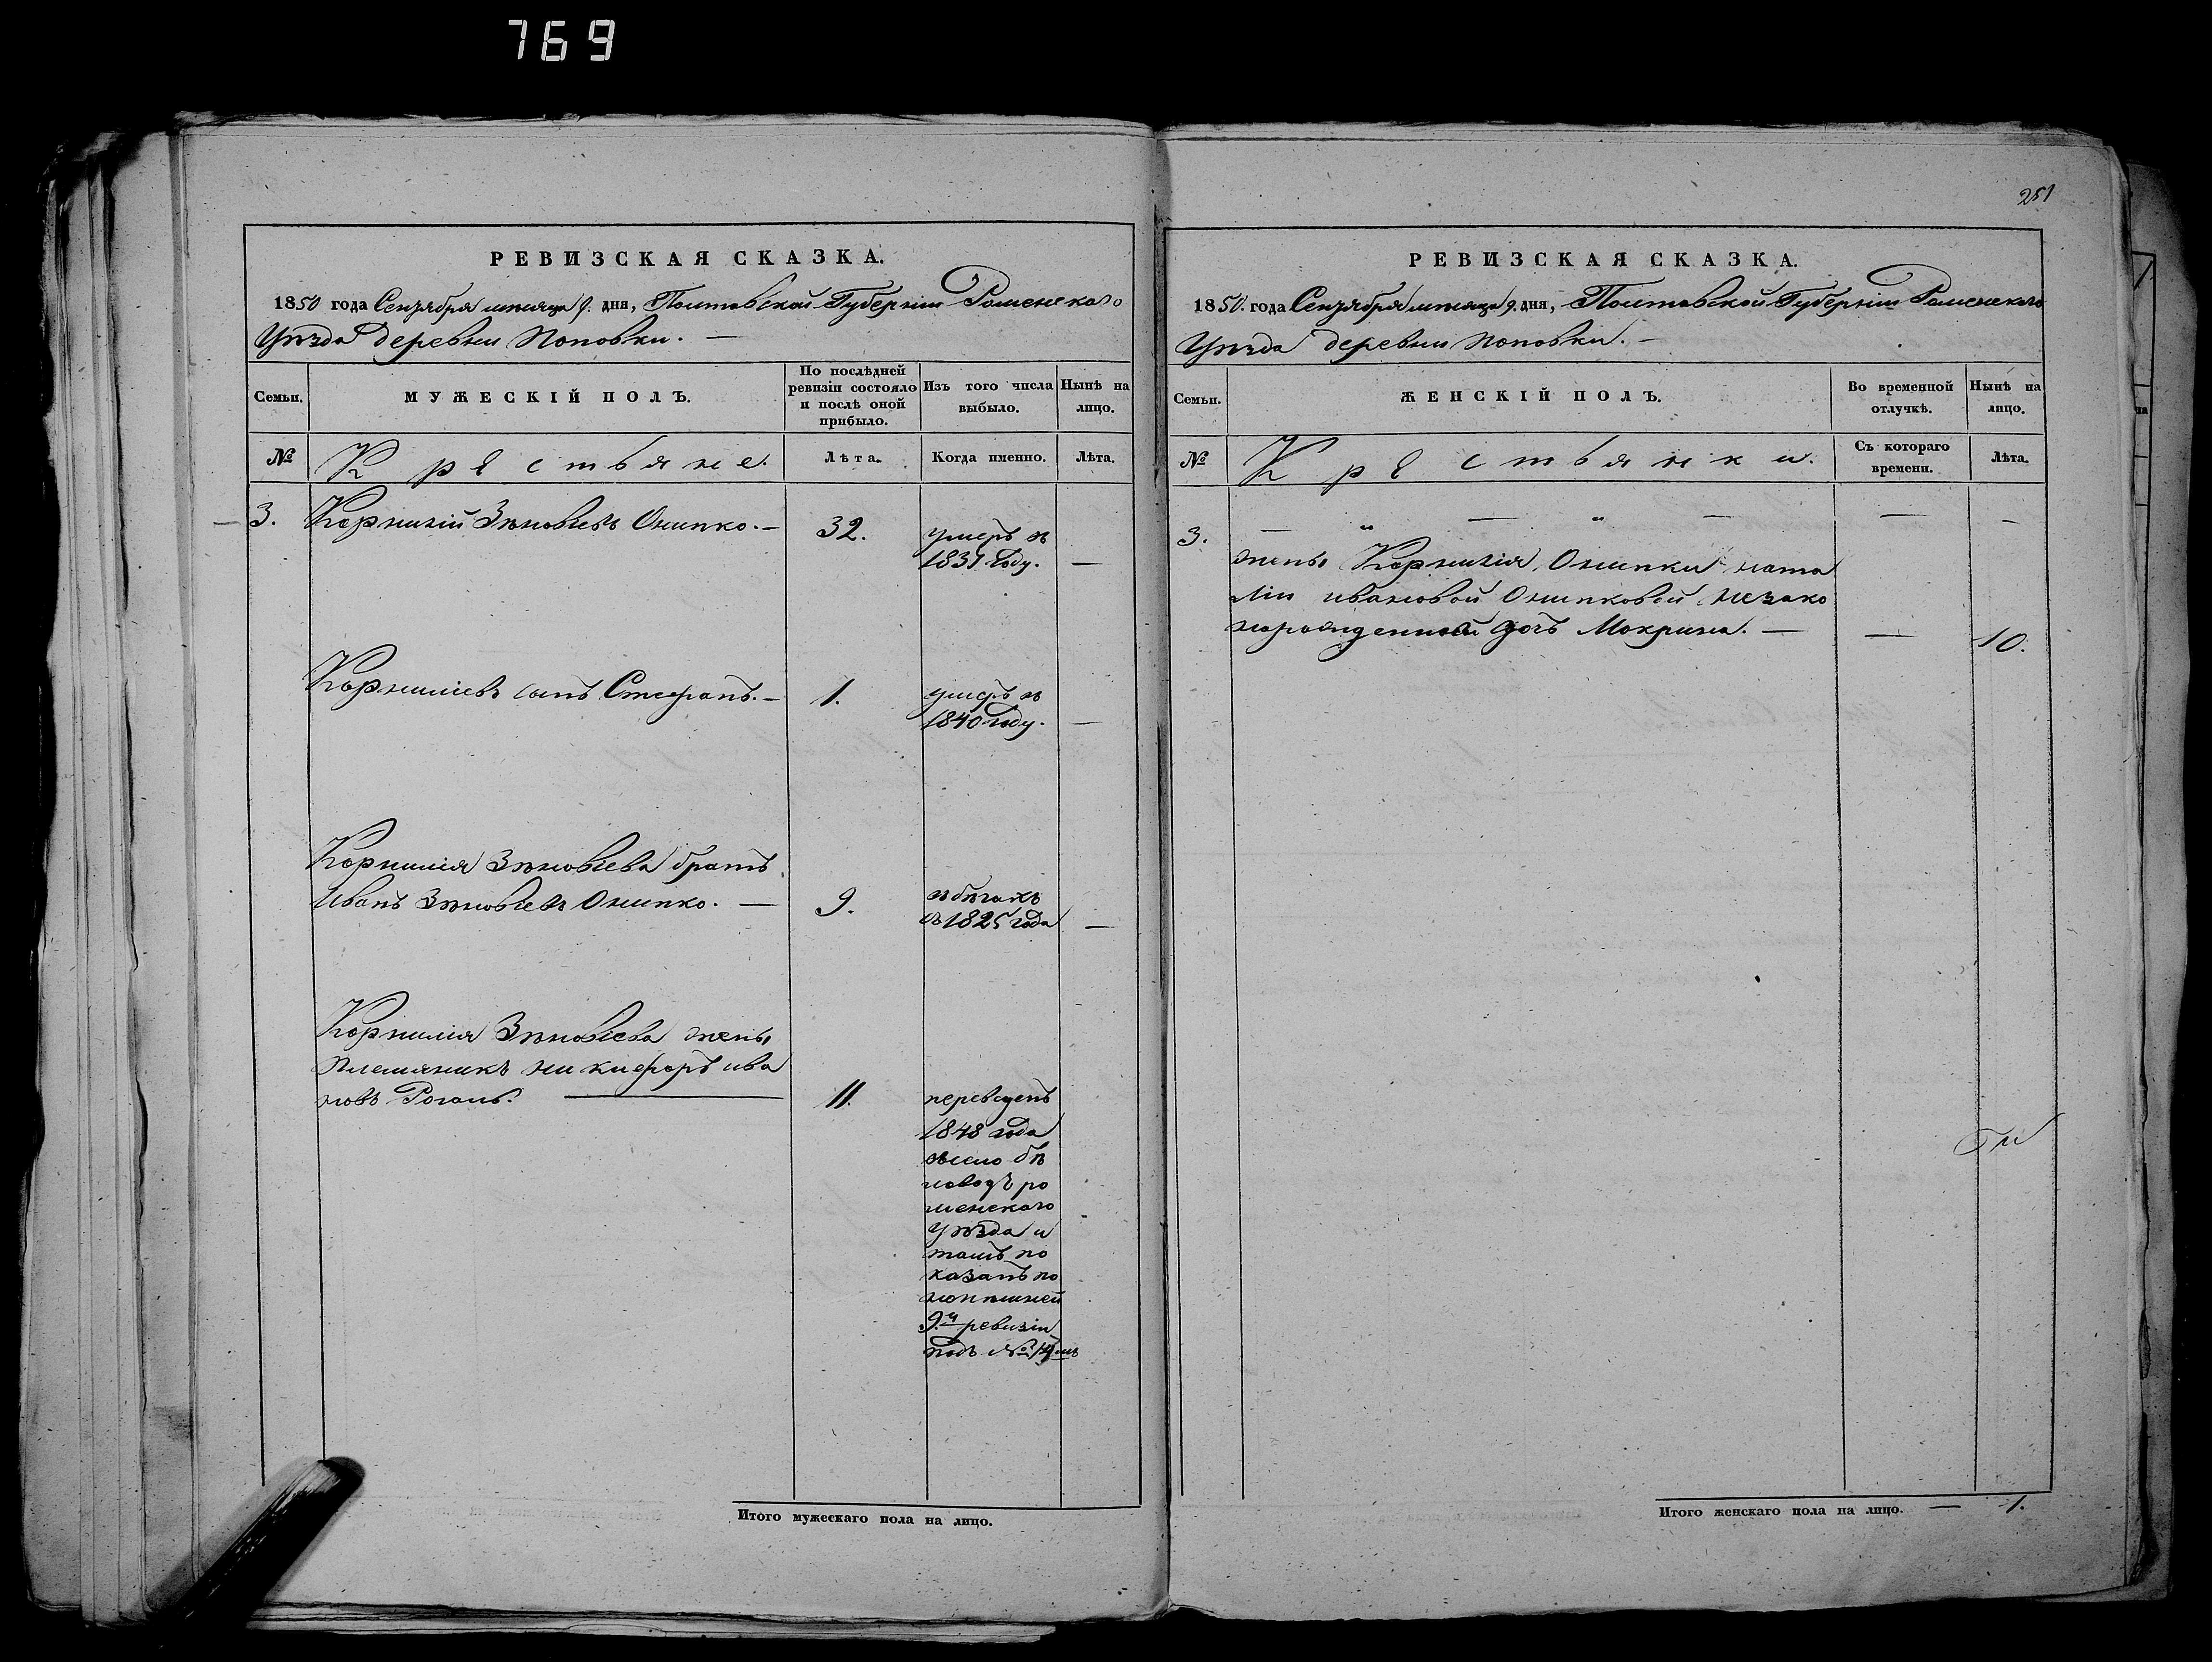 769
251
РЕВИЗСКАЯ СКАЗКА.
1850 года Сентября мѣсяца 9. дня, Полтавской Губерніи Роменскаго
Уѣзда деревни Поповки. —
Семьи.
МУЖЕСКІЙ ПОЛЪ.
По послѣдней
ревизіи состояло
и послѣ оной
прибыло.
Изъ того числа
выбыло.
Нынѣ на
лицо.
№
Крестьяне.
Лѣта.
Когда именно.
Лѣта.
3. Корнилій Зѣновіевъ Онипко. — 32. умеръ въ
1831 году. —
Корниліевъ сынъ Стефанъ. — 1. умеръ въ
1840 году. —
Корнилія Зѣновіева братъ
Иванъ Зѣновіевъ Онипко. — 9. въ бѣгахъ
съ 1825 года —
Корнилія Зѣновіева жены
племяникъ никифоръ ива
новъ Рогаль. — 11. переведенъ
1848 года
въ село бѣ
ловодъ ро
менскаго
Уѣзда и
тамъ по
казанъ по
нынѣшней
9.й ревизіи
подъ №
Итого мужескаго пола на лицо.
РЕВИЗСКАЯ СКАЗКА.
1850. года Сентября мѣсяца 9. дня, Полтавской Губерніи Роменскаго
Уѣзда деревни Поповки. —
Семьи.
ЖЕНСКІЙ ПОЛЪ.
Во временной
отлучкѣ.
Нынѣ на
лицо.
№
Крестьянки.
Съ котораго
времени.
Лѣта.
— „ — „ — — —
3.
жены Корнилія Онипки ната
ліи ивановой Онипковой незако
норожденной дочь Мокрина. — — 10.
Итого женскаго пола на лицо. — 1.